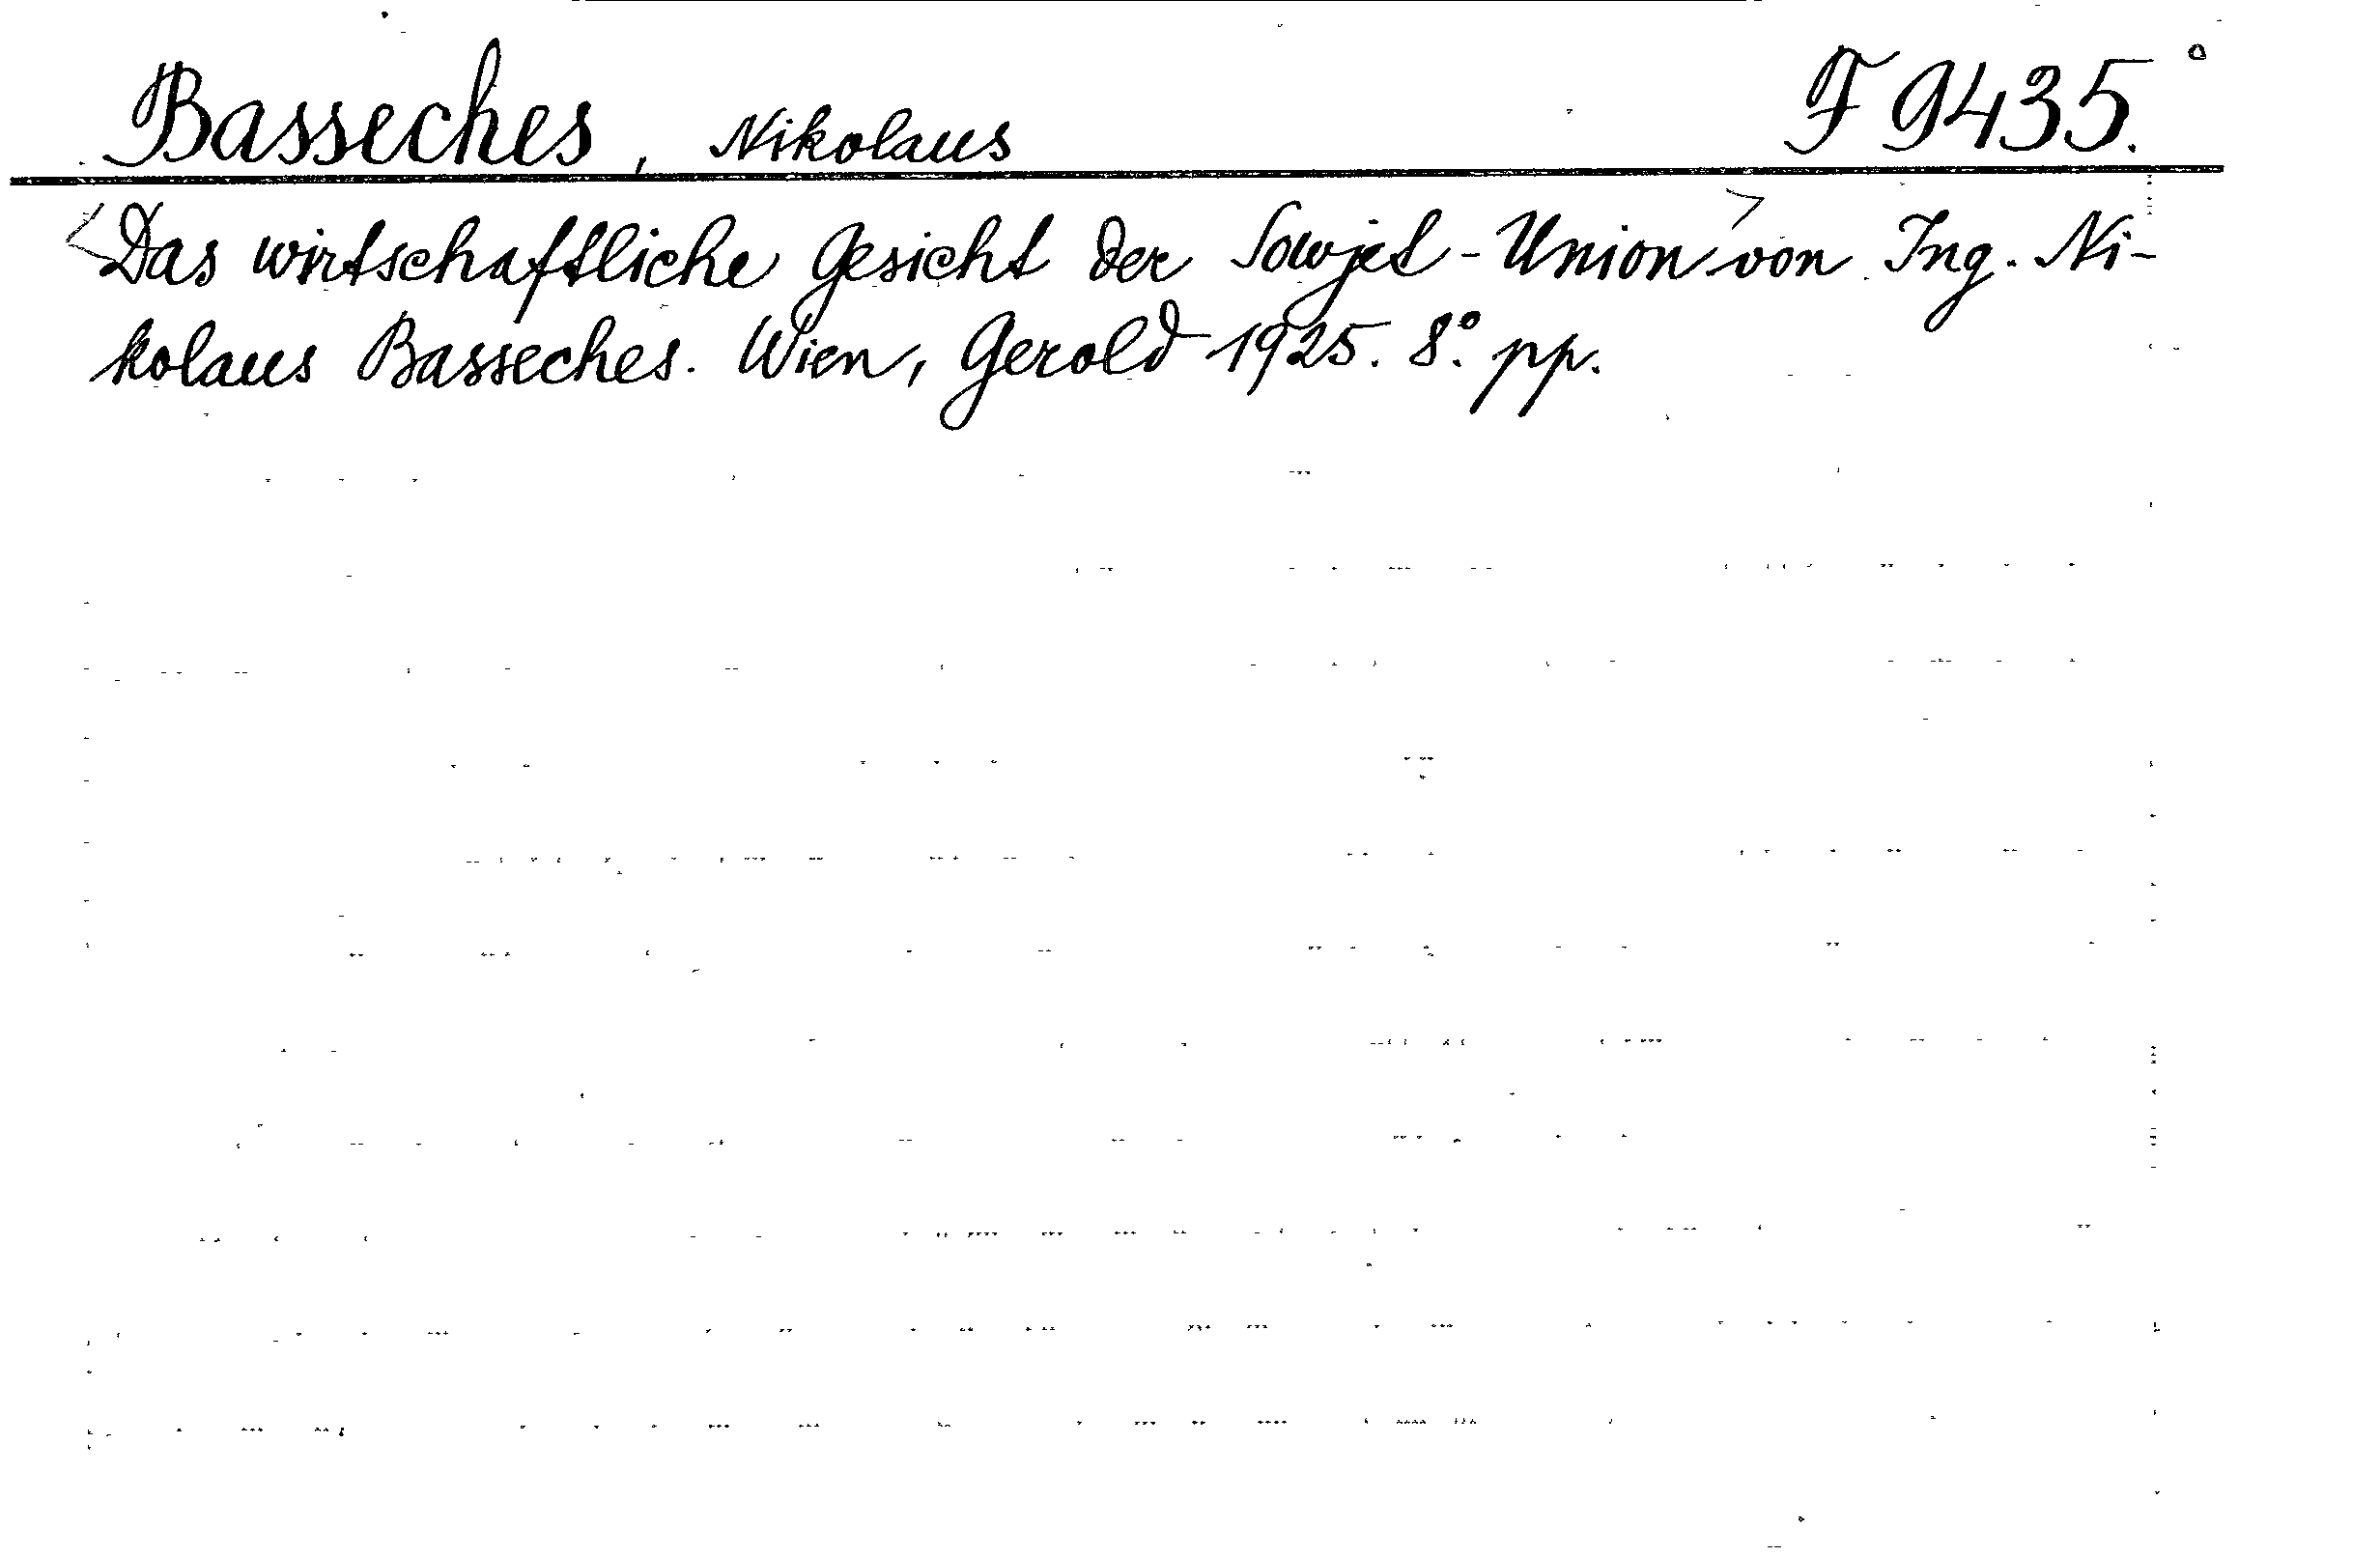 Basseches, Nikolaus F 9435.°
<Das wirtschaftliche Gesicht der Sowjet-Union> von Ing. Ni-
kolaus Basseches. Wien, Gerold 1925. 8°. pp.